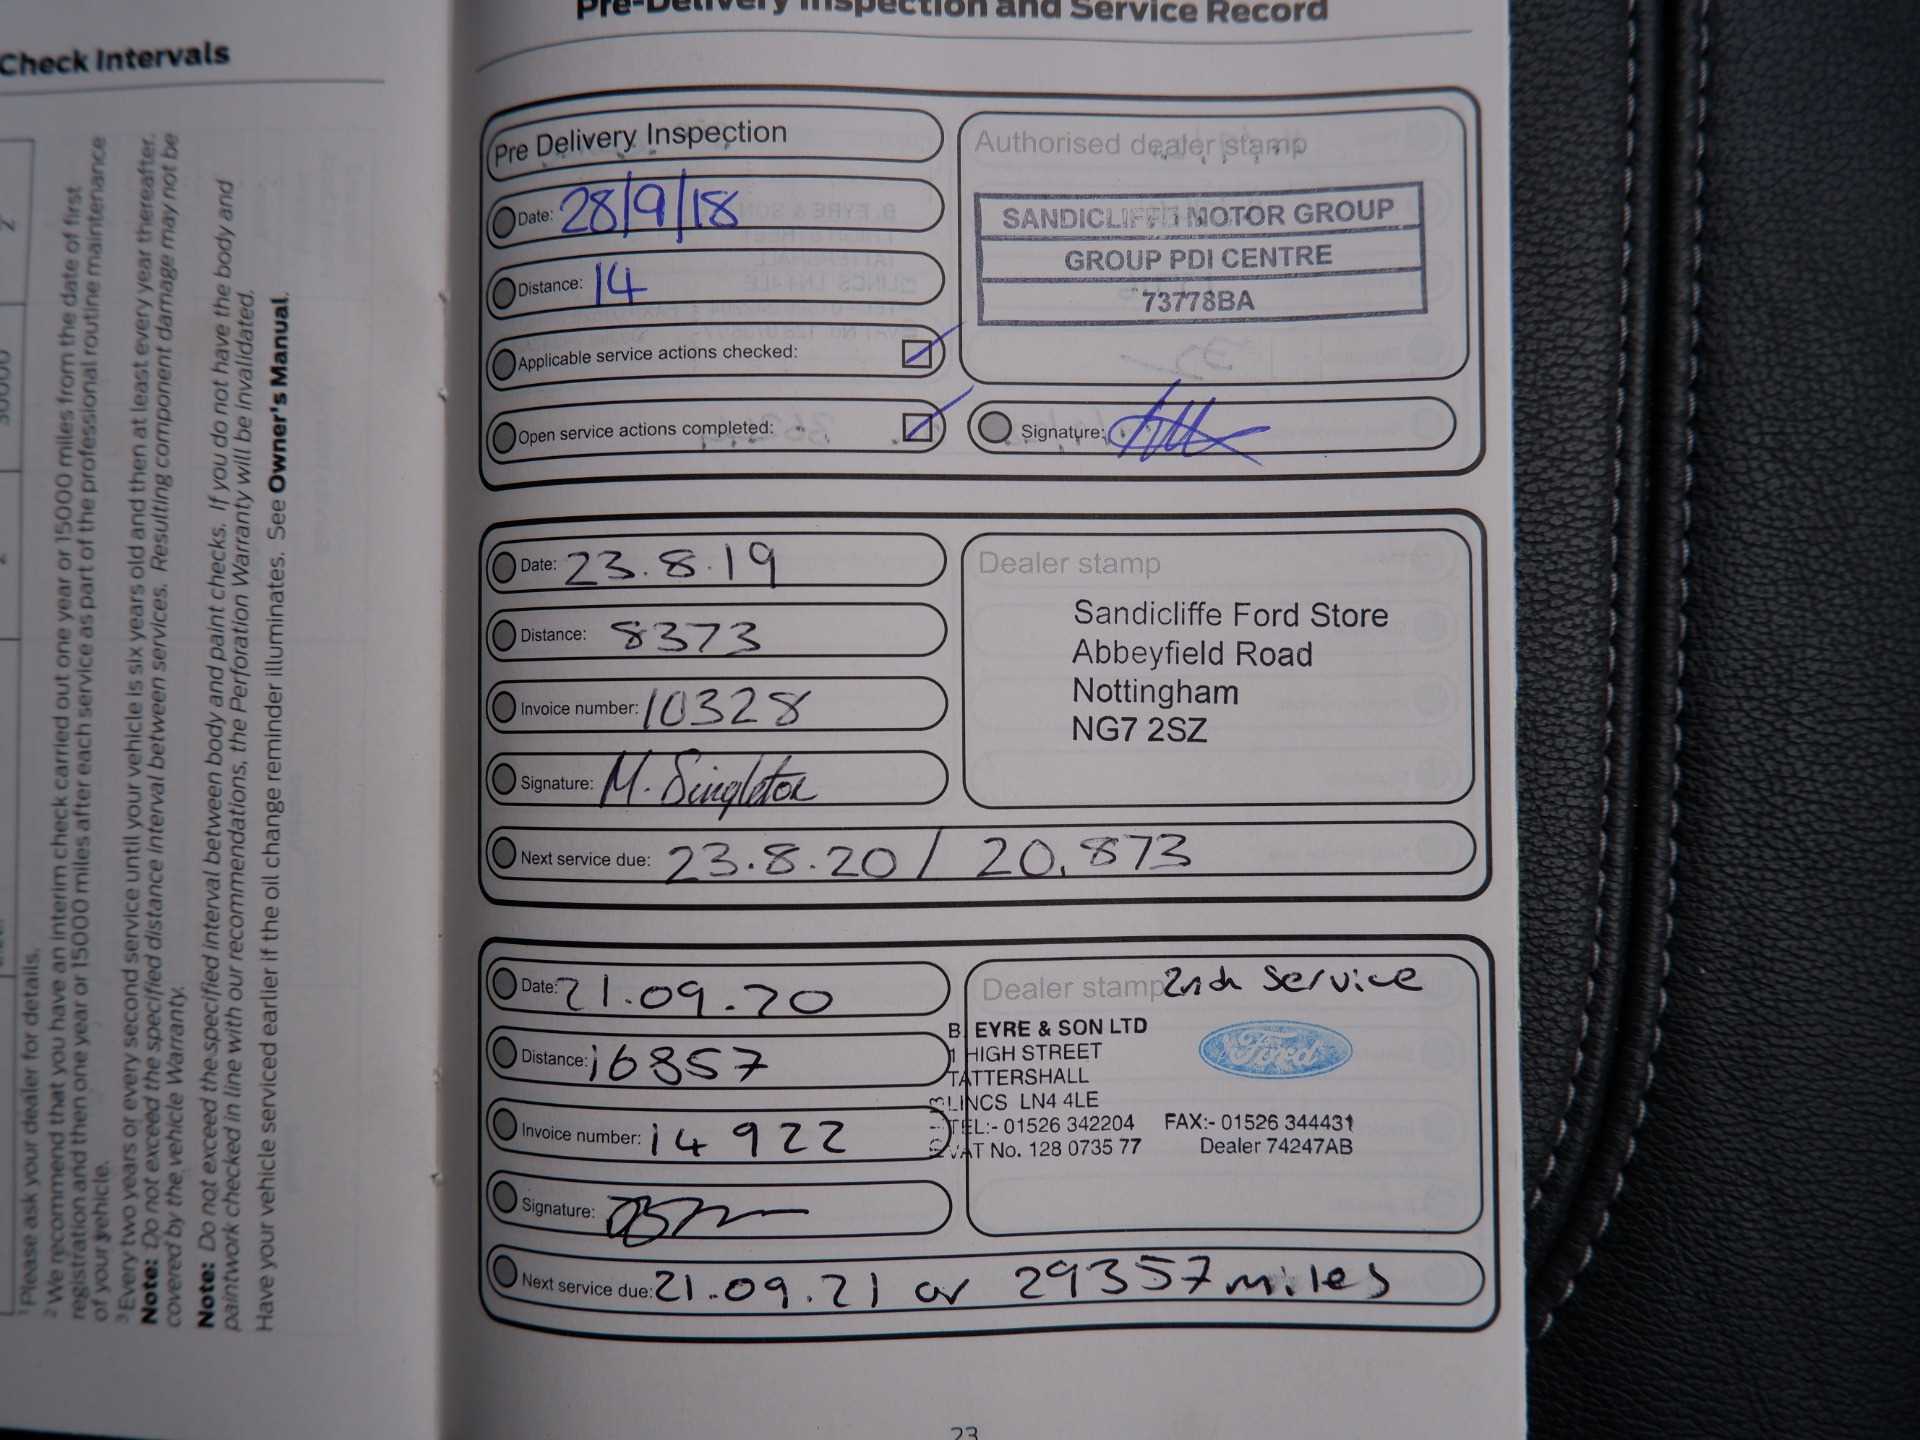 Check Intervals
2
30000
2
¹ Please ask your dealer for details.
² We recommend that you have an interim check carried out one year or 15000 miles from the date of first
registration and then one year or 15000 miles after each service as part of the professional routine maintenance
of your vehicle.
³ Every two years or every second service until your vehicle is six years old and then at least every year thereafter.
Note: Do not exceed the specified distance interval between services. Resulting component damage may not be
covered by the vehicle Warranty.
Note: Do not exceed the specified interval between body and paint checks. If you do not have the body and
paintwork checked in line with our recommendations, the Perforation Warranty will be invalidated.
Have your vehicle serviced earlier if the oil change reminder illuminates. See Owner's Manual.
Pre-Delivery Inspection and Service Record
Pre Delivery Inspection
Date: 28/9/18
Distance: 14
Applicable service actions checked:
Open service actions completed:
Authorised dealer stamp
SANDICLIFFE MOTOR GROUP
GROUP PDI CENTRE
73778BA
Signature:
Date: 23.8.19
Distance: 8373
Invoice number: 10328
Signature: M. Singleton
Dealer stamp
Sandicliffe Ford Store
Abbeyfield Road
Nottingham
NG7 2SZ
Next service due: 23.8.20 / 20,873
Date: 21.09.20
Distance: 16857
Invoice number: 14922
Signature:
Dealer stamp 2nd Service
B. EYRE & SON LTD
1 HIGH STREET
TATTERSHALL
LINCS LN4 4LE
TEL:- 01526 342204 FAX:- 01526 344431
VAT No. 128 0735 77 Dealer 74247AB
Ford
Next service due: 21.09.21 or 29357 miles
23